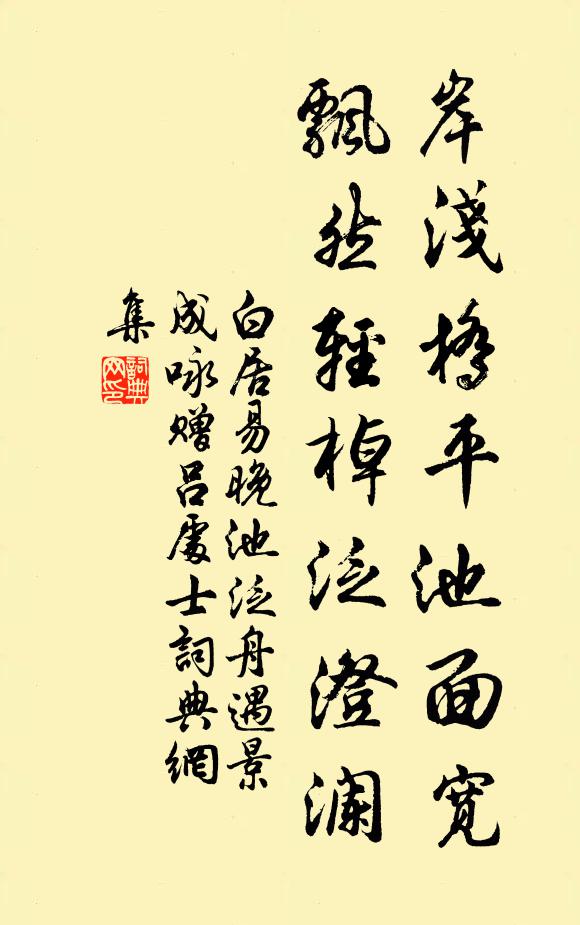 岸淺橋平池面寬
飄然輕棹泛澄瀾
白居易晚池泛舟遇景
成咏贈呂處士詞典網
集
詞典
网印